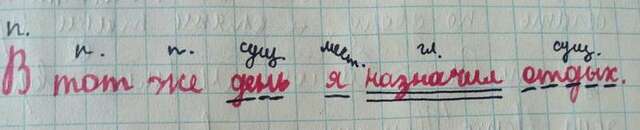 п.
п. п. сущ. мест. гл. сущ.
В тот же день я назначил отдых.